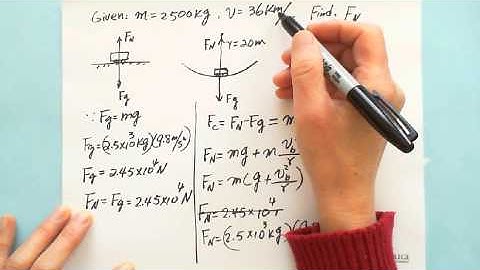 Given: m = 2500kg, v = 36km/ Find. F_N
F_N
F_g
∵ F_g = mg
F_g = (2.5×10³kg)(9.8m/s²)
F_g = 2.45×10⁴N
F_N = F_g = 2.45×10⁴N
F_N r = 20m
F_g
F_c = F_N - F_g = m
F_N = mg + m v_b²/r
F_N = m(g + v_b²/r)
F_N = 2.45×10⁴
F_N = (2.5×10³kg)(